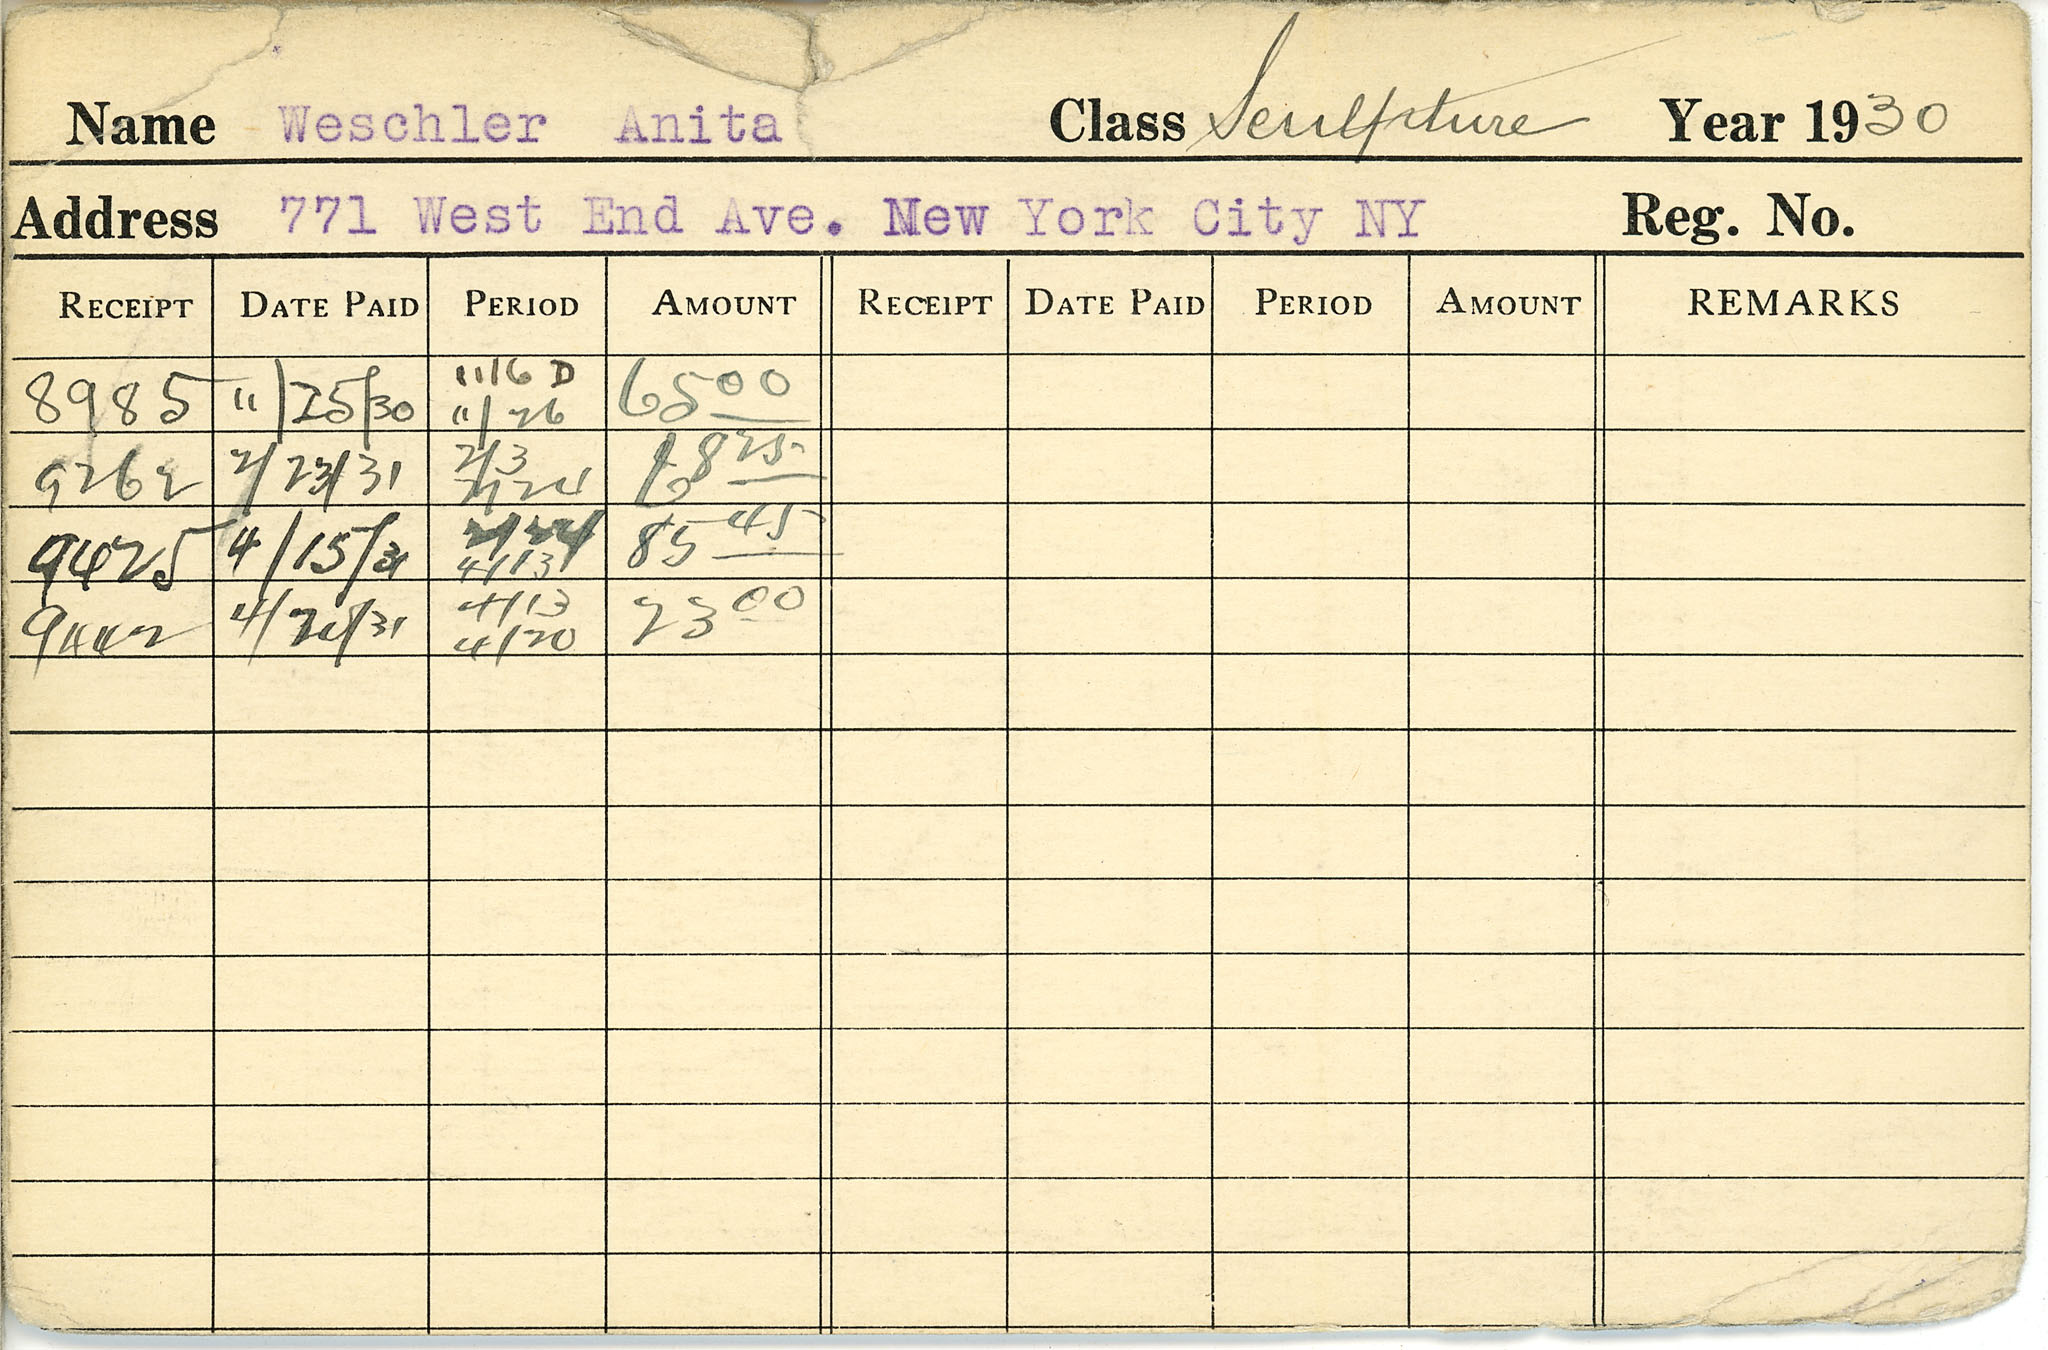 Name Weschler Anita Class Sculpture Year 1930
Address 771 West End Ave. New York City NY Reg. No.
RECEIPT DATE PAID PERIOD AMOUNT RECEIPT DATE PAID PERIOD AMOUNT REMARKS
8985 11/25/30 11/6 D 11/26 65 00
9262 2/23/31 2/3 2/24 68 25
9425 4/15/31 2/24 4/13 85 45
9442 4/20/31 4/13 4/20 23 00